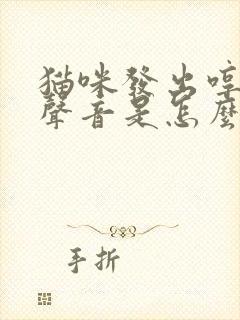 猫咪發出哼
聲音是怎麼
手折